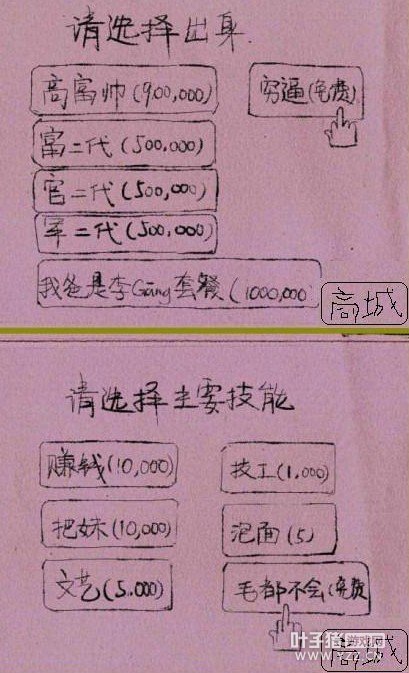 请选择出身
高富帅(900,000)
穷逼(免费)
富二代(500,000)
官二代(500,000)
军二代(500,000)
我爸是李Gang套餐(1000,000
商城
请选择主要技能
赚钱(10,000)
技工(1,000)
把妹(10,000)
泡面(5)
文艺(5,000)
毛都不会(免费
商城
叶子猪游戏网
yzz.cn